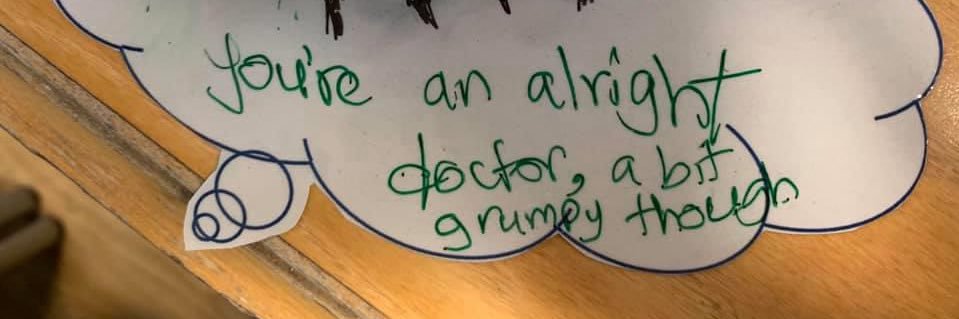 You're an alright
doctor, a bit
grumpy though